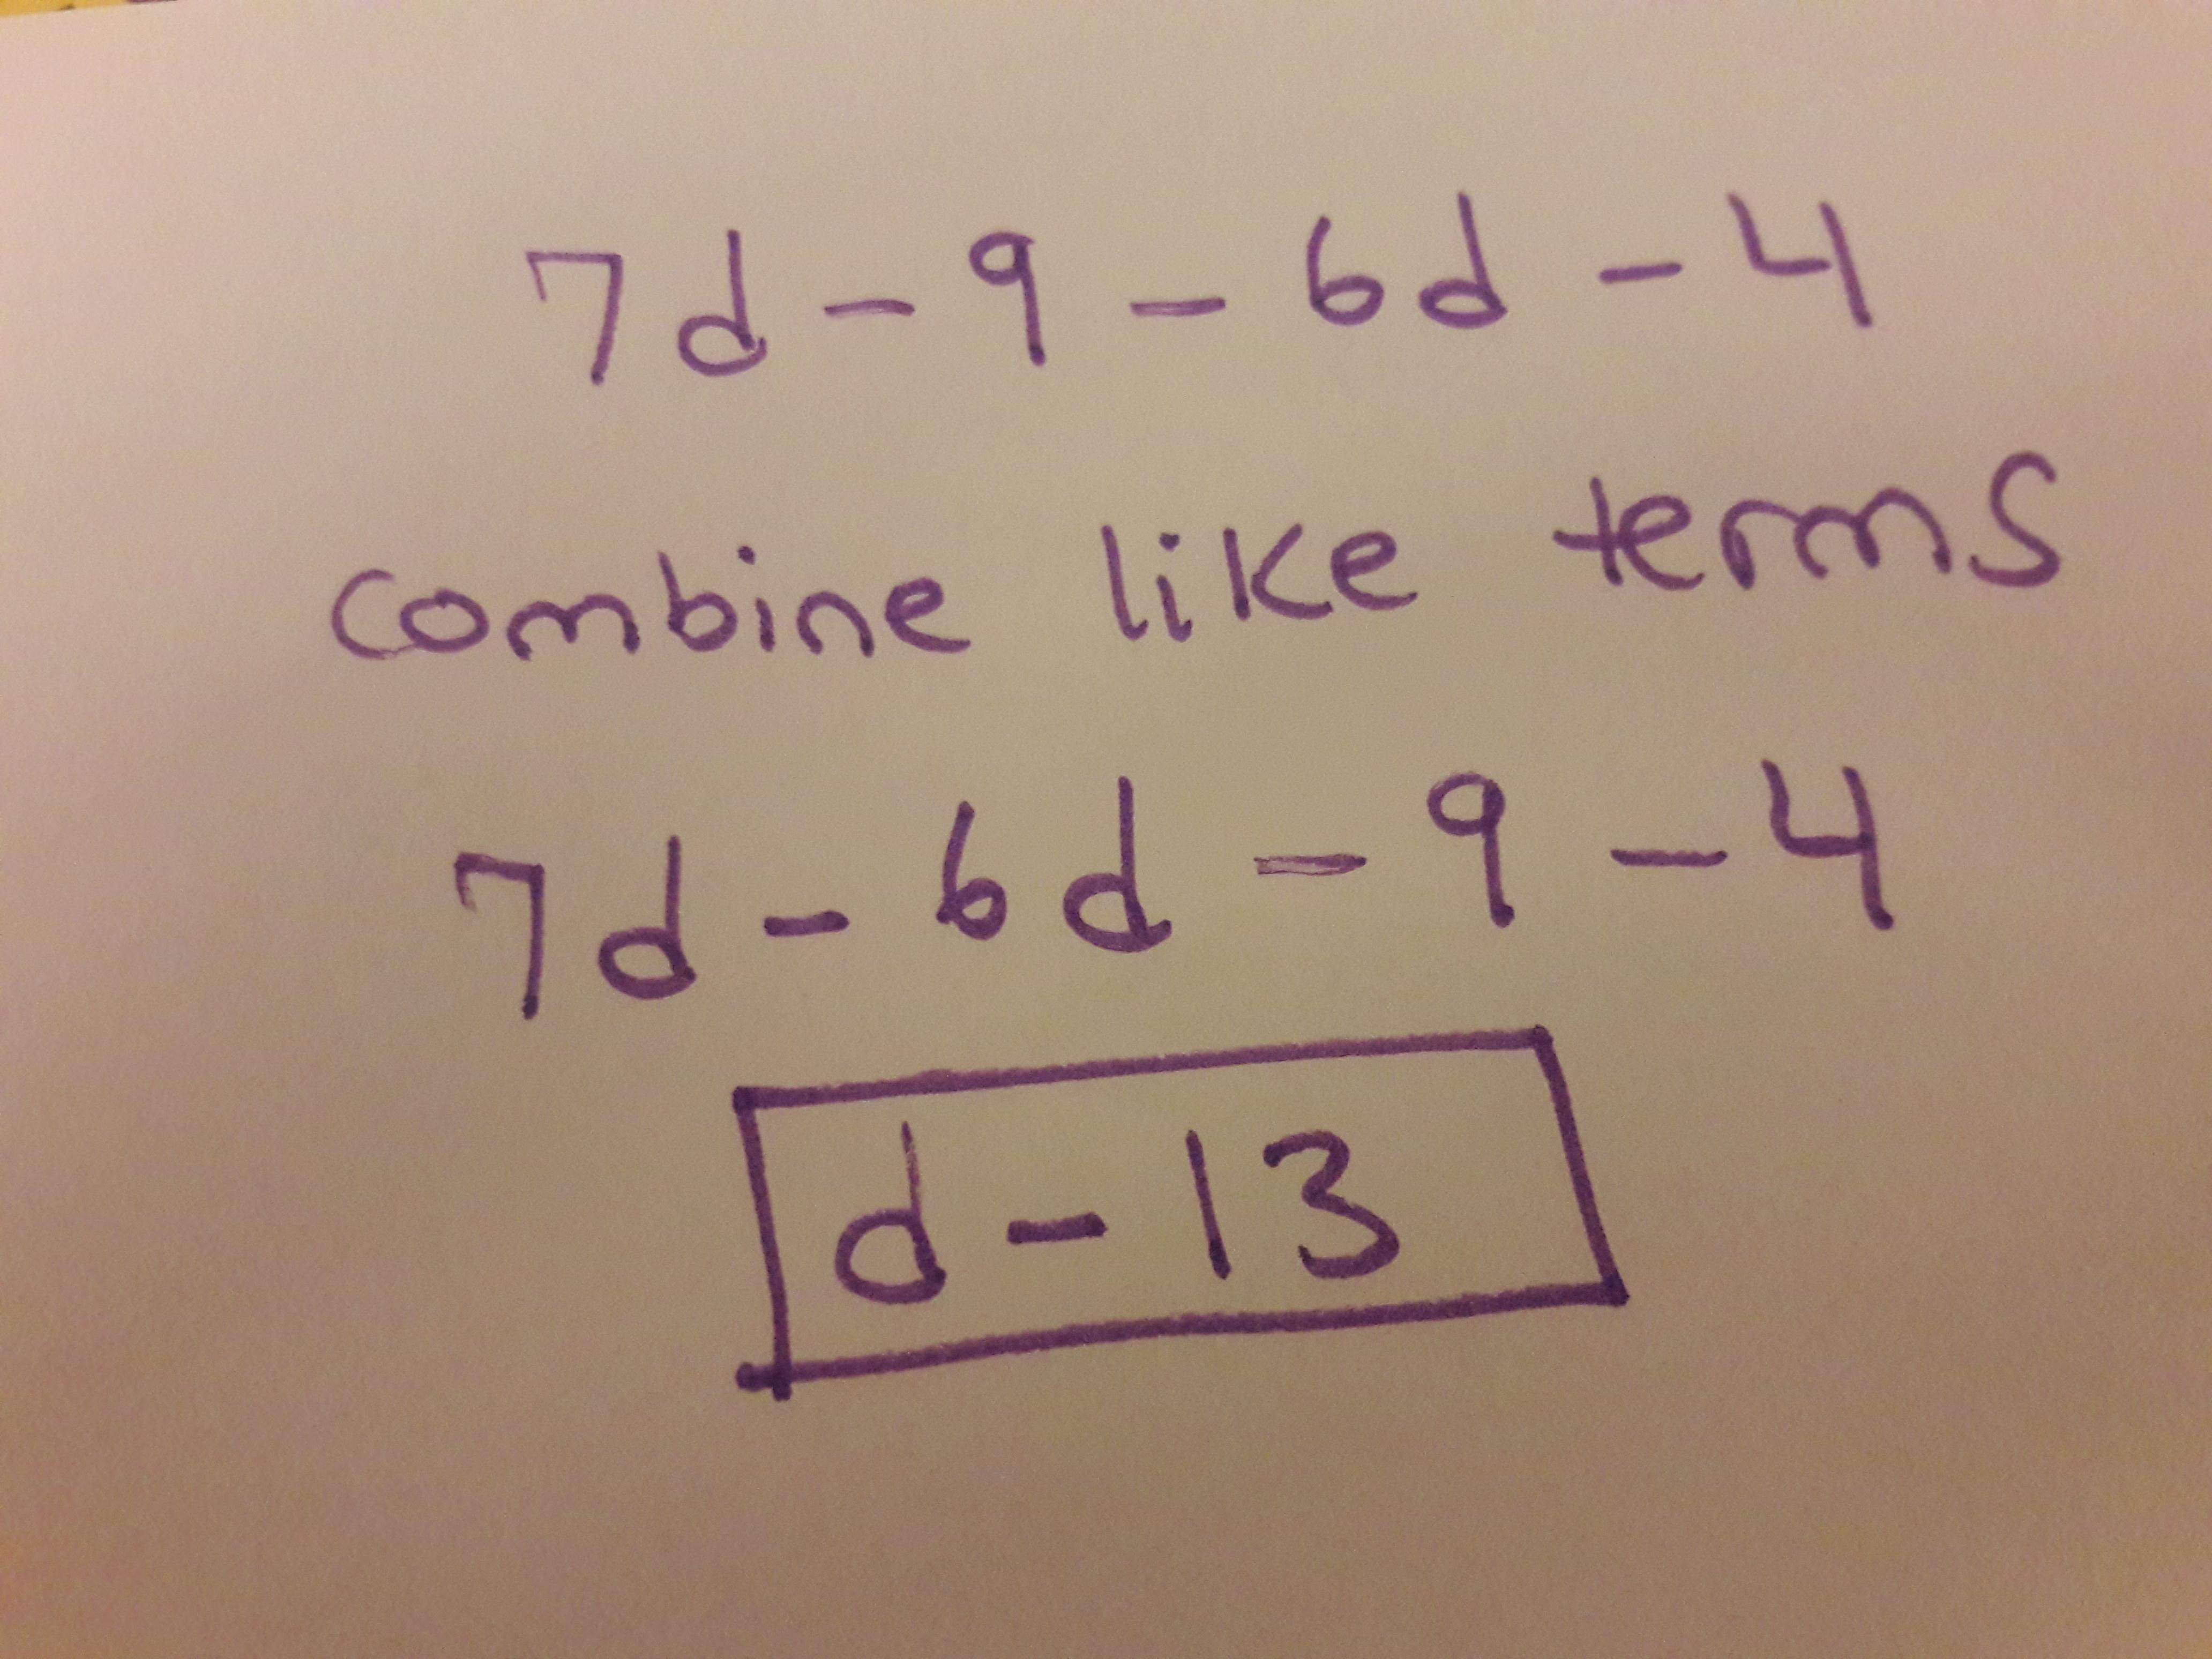 7d - 9 - 6d - 4
combine like terms
7d - 6d - 9 - 4
d - 13